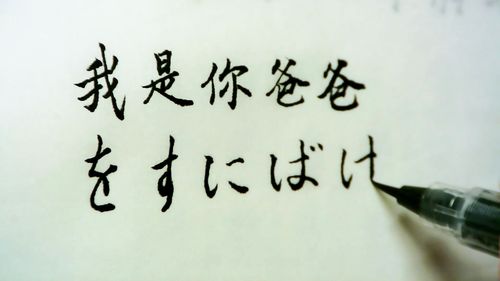 我是你爸爸
をすにばけ